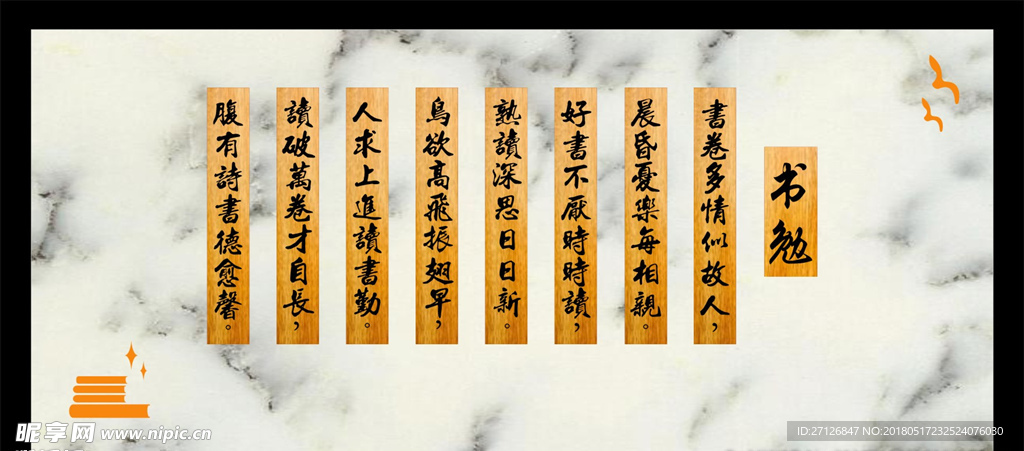 书勉
書卷多情似故人，
晨昏憂樂每相親。
好書不厭時時讀，
熟讀深思日日新。
鳥欲高飛振翅早，
人求上進讀書勤。
讀破萬卷才自長，
腹有詩書德愈馨。
昵享网 www.nipic.cn
ID:27126847 NO:20180517232524076030